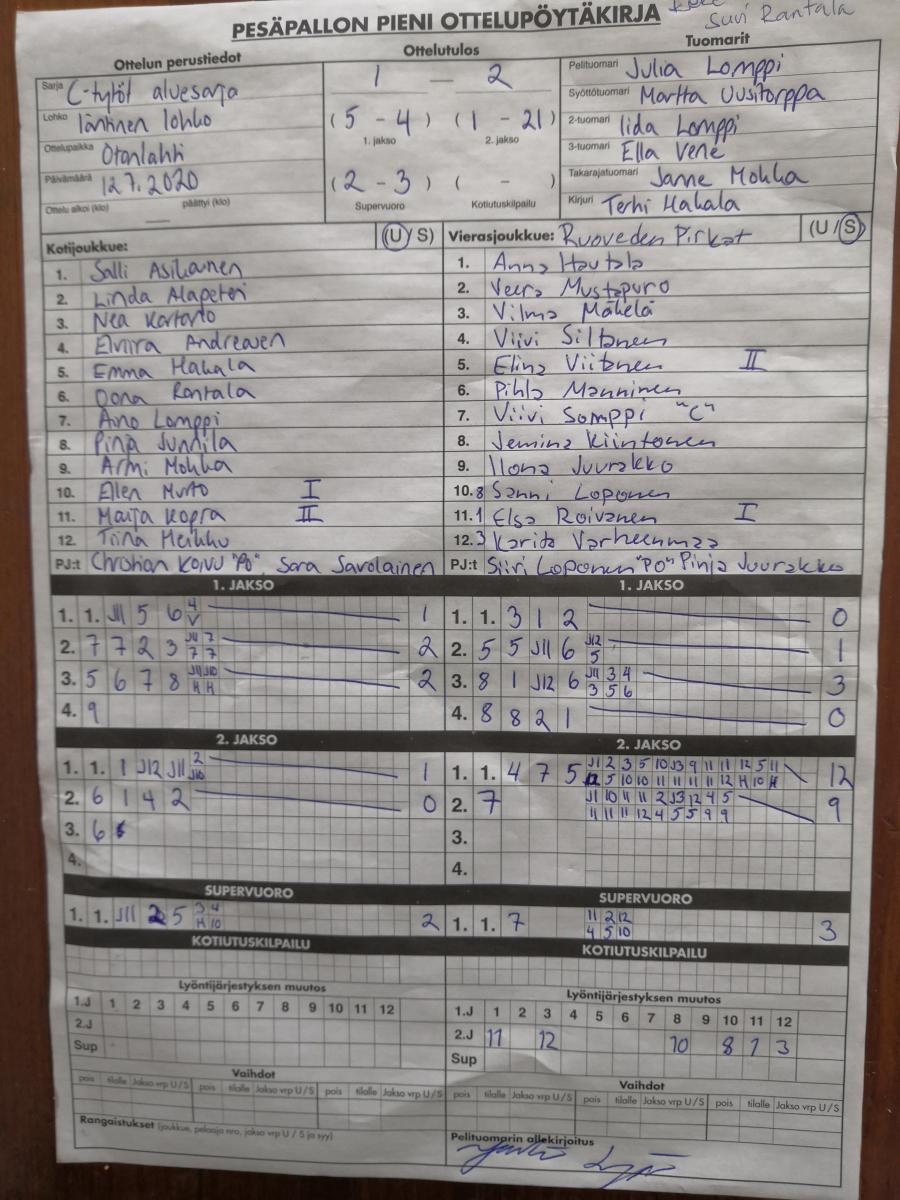 PESÄPALLON PIENI OTTELUPÖYTÄKIRJA
Suvi Rantala
Ottelun perustiedot
Sarja C-tytöt aluesarja
Lohko läntinen lohko
Ottelupaikka Otanlahti
Päivämäärä 12.7.2020
Ottelu alkoi (klo) — päättyi (klo)
Ottelutulos
1 — 2
(5 - 4) (1 - 21)
1. jakso 2. jakso
(2 - 3) ( - )
Supervuoro Kotiutuskilpailu
Tuomarit
Pelituomari Julia Lomppi
Syöttötuomari Martta Uusitorppa
2-tuomari Iida Lomppi
3-tuomari Ella Vene
Takarajatuomari Janne Mokka
Kirjuri Terhi Hakala
Kotijoukkue: (U / S)
1. Salli Asikainen
2. Linda Alapeteri
3. Nea
4. Elviira Andreasen
5. Emma Hakala
6. Oona Rantala
7. Aino Lomppi
8. Pinja Junnila
9. Armi Mokka
10. Ellen Murto I
11. Maija Kopra II
12. Tiina Heikko
PJ:t Christian Koivu "PO", Sara Savolainen
Vierasjoukkue: Ruoveden Pirkat (U / S)
1. Anna Hautala
2. Veera Mustapuro
3. Vilma Mäkelä
4. Viivi Siltanen
5. Elina Viitanen II
6. Pihla Manninen
7. Viivi Somppi "C"
8. Jemina Kiintonen
9. Ilona Juurakko
10. 8 Sanni Loponen
11. 1 Elsa Roivanen I
12. 3 Karita Varheenmaa
PJ:t Siiri Loponen "PO" Pinja Juurakko
1. JAKSO
1. 1. J11 5 6 4 V 1
2. 7 7 2 3 J11 7 7 7 2
3. 5 6 7 8 J11 J10 H H 2
4. 9
1. JAKSO
1. 1. 3 1 2 0
2. 5 5 J11 6 J12 5 1
3. 8 1 J12 6 J11 3 4 3 5 6 3
4. 8 8 2 1 0
2. JAKSO
1. 1. 1 J12 J11 2 J10 1
2. 6 1 4 2 0
3. 6
4.
2. JAKSO
1. 1. 4 7 5 J1 2 3 5 10 J3 9 11 11 12 5 11 12
12 5 10 10 11 11 11 11 12 H 10 H
2. 7 J1 10 11 11 2 J3 12 4 5 9
11 11 11 12 4 5 5 9 9
3.
4.
SUPERVUORO
1. 1. J11 2 5 3 4 H 10 2
SUPERVUORO
1. 1. 7 11 2 12 4 5 10 3
KOTIUTUSKILPAILU
KOTIUTUSKILPAILU
Lyöntijärjestyksen muutos
1.J 1 2 3 4 5 6 7 8 9 10 11 12
2.J
Sup
Lyöntijärjestyksen muutos
1.J 1 2 3 4 5 6 7 8 9 10 11 12
2.J 11 12 10 8 1 3
Sup
Vaihdot
pois tilalle Jakso vrp U / S pois tilalle Jakso vrp U / S pois tilalle Jakso vrp U / S
Vaihdot
pois tilalle Jakso vrp U / S pois tilalle Jakso vrp U / S pois tilalle Jakso vrp U / S
Rangaistukset (joukkue, pelaaja nro, jakso vrp U / S ja syy)
Pelituomarin allekirjoitus